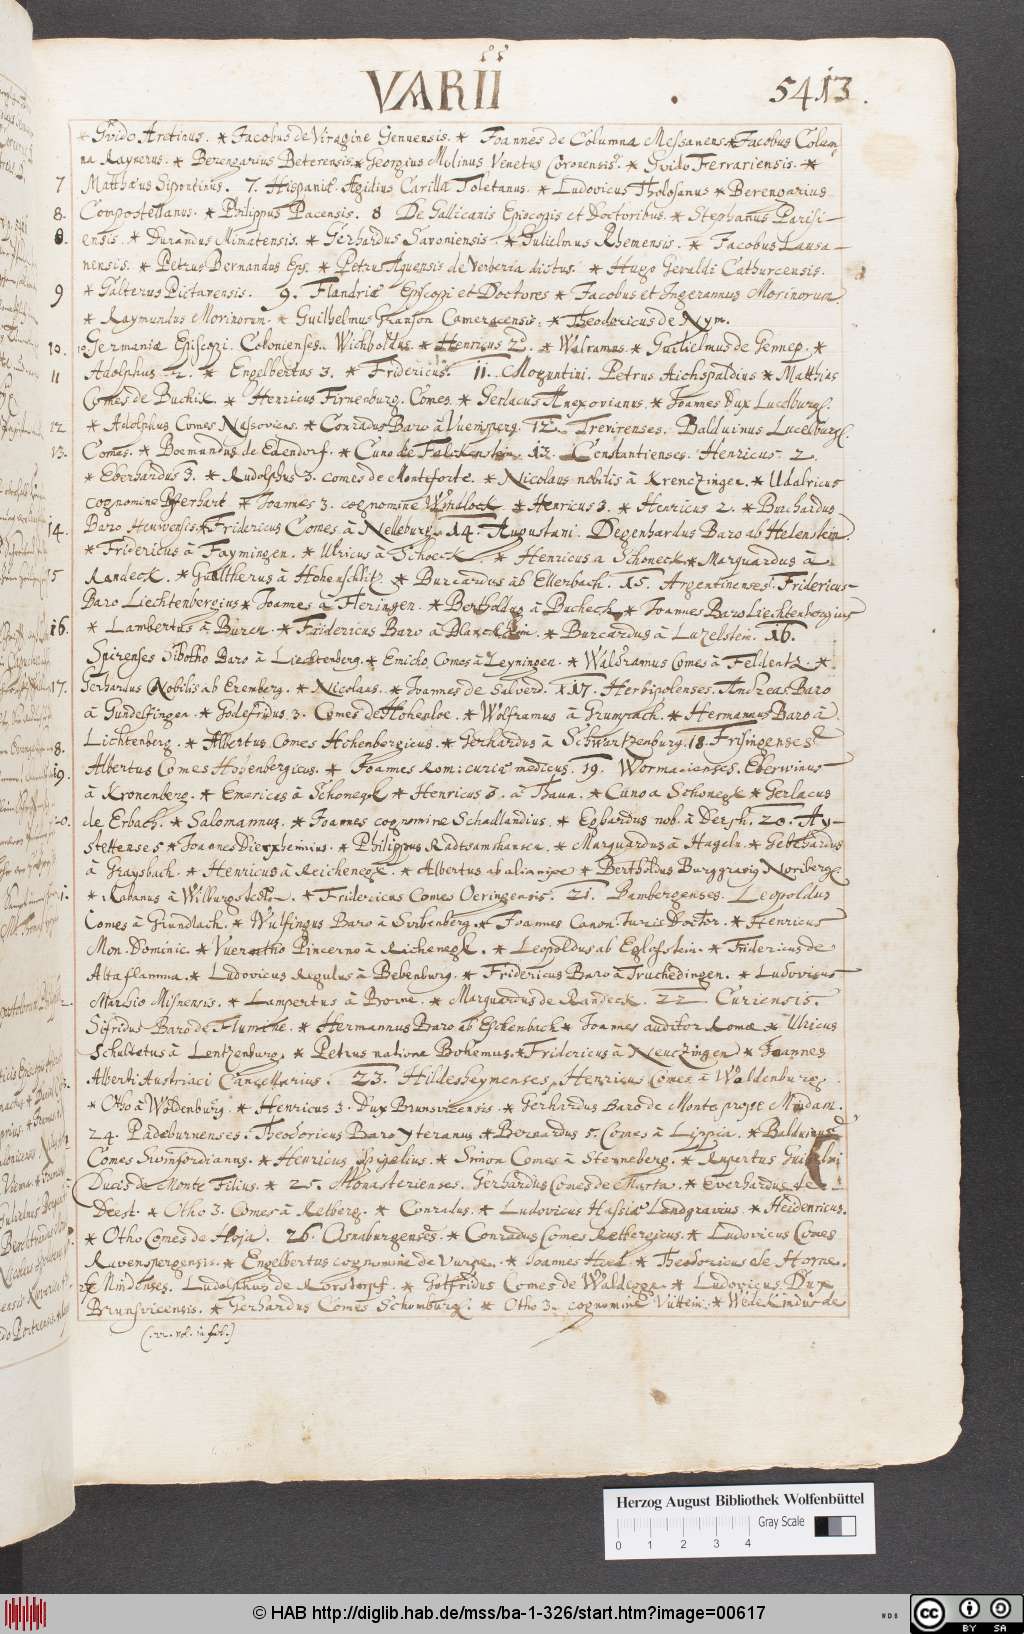 VARII
5413.
* Guido Aretinus. * Jacobus de Viragine Genuensis. * Joannes de Columna Messanens. * Jacobus Colum
na Raynerus. * Berengarius Beterensis. * Georgius Molinus Venetus Coronensis. * Guido Ferrariensis. *
7 Matthæus Sipontinus. 7. Hispaniæ Ægidius Carillæ Toletanus. * Ludovicus Tholosanus * Berengarius
8. Compostellanus. * Philippus Pacensis. 8 De Gallicanis Episcopis et Doctoribus. * Stephanus Parisi-
8. ensis. * Durandus Mimatensis. * Gerhardus Savoniensis * Gulielmus Rhemensis. * Jacobus Lausa-
nensis. * Petrus Bernandus Eps. * Petrus Aquensis de Verberia dictus. * Hugo Geraldi Cathurcensis.
9 * Galterus Pictavensis. 9. Flandriæ Episcopi et Doctores * Jacobus et Ingerannus Morinorum
* Raymundus Morinorum. * Guilhelmus Granson Cameracensis. * Theodoricus de Nym.
10. 10 Germaniæ Episcopi. Colonienses. Wichboldus * Henricus 2. * Walramus. * Guilielmus de Gennep. *
11 Adolphus 2. * Engelbertus 3. * Fridericus. 11. Moguntini. Petrus Aichspaldius * Matthias
Comes de Buchik. * Henricus Firnenburg. Comes. * Gerlacus Anexovianus. * Joannes Dux Luceburg.
12 * Adolphus Comes Nasovicus. * Conradus Baro à Vuemsperg. 12. Trevirenses. Balduinus Lucelburg.
13. Comes. * Boemundus de Edendorf. * Cuno de Falckenstein. 13. Constantienses. Henricus 2.
* Eberhardus 3. * Rudolphus 3. comes de Monteforte. * Nicolaus nobilis à Krenczingen. * Udalricus
cognomine Pfferhart * Joannes 3. cognomine Windlock * Henricus 3. * Henricus 2. * Burchardus
14. Baro Hewensis. * Fridericus Comes à Nelleburg. 14. Augustani. Degenhardus Baro ab Helenstein.
* Fridericus à Faymingen. * Ulricus à Schoeck. * Henricus a Schoneck * Marquardus à
15 Randeck. * Gualtherus à Hohenschlitz. * Burcardus ab Ellerbach. 15. Argentinenses. Fridericus
Baro Liechtenbergius * Joannes à Fleringen. * Bertholdus à Bucheck * Joannes Baro Liechtenbergius
16. * Lambertus à Buren. * Fridericus Baro à Blanckhein. * Burcardus à Luzelstein. 16.
Spirenses Sibotho Baro à Liechtenberg. * Emicho Comes à Leyningen. * Walframus Comes à Feldentz. *
17. Gerhardus Nobilis ab Eremberg. * Nicolaus. * Joannes de Salverd. 17. Herbipolenses. Andreas Baro
à Gundelfingen. * Godefridus 3. Comes de Hohenloe. * Wolframus à Grumpach. * Hermannus Baro à
8. Lichtenberg. * Albertus Comes Hohenbergicus. * Gerhardus à Schwartzenburg. 18. Frisingenses
19. Albertus Comes Hohenbergicus. * Joannes Rom: curiæ medicus. 19. Wormacienses. Eberwinus
à Kronenberg. * Emericus à Schonegk * Henricus 3. à Thaun. * Cuno a Schonegk * Gerlacus
20. de Erbach. * Salomannus. * Joannes cognomine Schadlandius. * Egbardus nob. à Dersh. 20. Ay-
stettenses * Joannes Dierpheimius. * Philippus Radtsamshausen. * Marquardus à Hageln. * Gebehardus
à Graysbach. * Henricus à Reichenegk. * Albertus * Bertholdus Burggravig Noriberg.
1. * Rabanus à Wilburgstedter. * Fridericus Comes Oeringensis. 21. Bambergenses. Leopoldus
Comes à Grundlach. * Wulfingus Baro à Stubenberg. * Joannes Canon. Iuris Doctor. * Henricus
Mon. Dominic. * Vuerntho Pincerno à Richenegk. * Leopoldus ab Eglofstein. * Fridericus de
Altaflamma. * Ludovicus Regulus à Bebenburg. * Fridericus Baro à Truchedingen. * Ludovicus
2. Marhio Misnensis. * Lampertus à Borne. * Marquardus de Randeck. 22 Curiensis.
Sifridus Baro de Flumine. * Hermannus Baro ab Eschenbach * Joannes auditor Romæ * Ulricus
Schultetus à Lentzenburg. * Petrus natione Bohemus. * Fridericus à Neuczingen * Joannes
Alberti Austriaci Cancellarius. 23. Hildesheymenses. Henricus Comes à Woldenburg.
* Otho à Woldenburg. * Henricus 3. Dux Brunsvicensis. * Gerhardus Baro de Monte prope Mindam.
24. Padeburnenses. Theodoricus Baro yteranus * Bernardus 5. Comes à Lippia. * Balduinus
Comes Swinfordiannus. * Henricus Spigelius. * Simon Comes à Sterneberg. * Rupertus Guilelmi
Ducis de Monte Filius. * 25. Monasterienses. Gerhardus Comes de Marta. * Everhardus de
Deest. * Otho 3. Comes à Retberg. * Conradus. * Ludovicus Hassiæ Landgravius. * Heidenricus.
* Otho Comes de Hoja. 26. Osnaburgenses. * Conradus Comes Rettergicus. * Ludovicus Comes
Ravenspergensis. * Engelbertus cognomine de Vurge. * Joannes Hoed. * Theodoricus de Horne.
27 Mindenses. Ludolphus de Rorstorpf. * Gotfridus Comes de Waldegge * Ludovicus Dux
Brunsvicensis. * Gerhardus Comes Schomburg. * Otho 3. cognomine Vuttein. * Wedekindus de
Herzog August Bibliothek Wolfenbüttel
Gray Scale
0 1 2 3 4
© HAB http://diglib.hab.de/mss/ba-1-326/start.htm?image=00617
cc BY SA